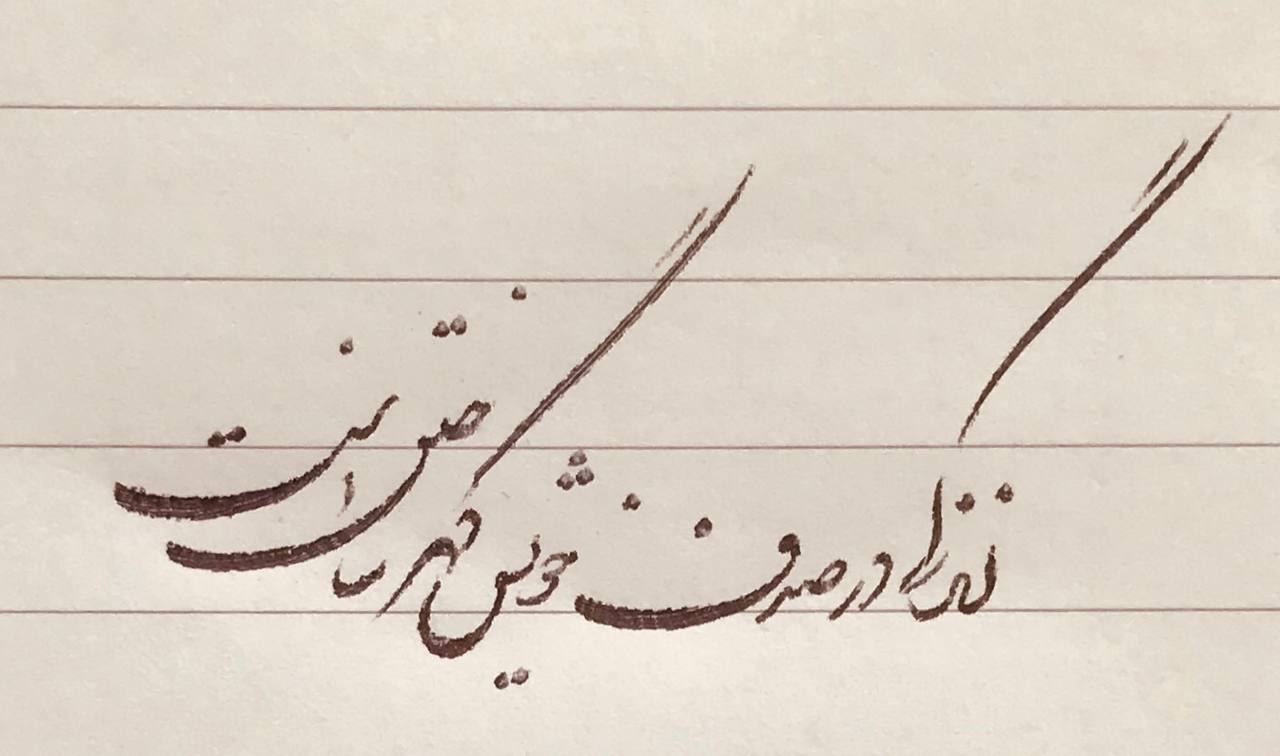 زندگی در صدف خویش گهر ساختن است